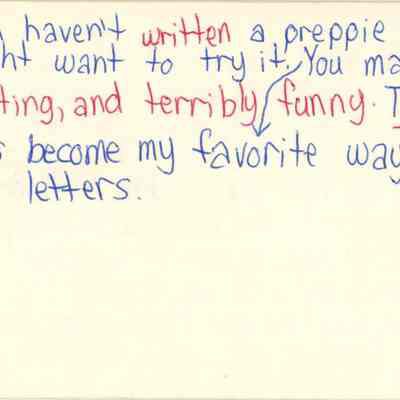 haven't written a preppie
want to try it. You
and terribly funny.
become my favorite way
letters.